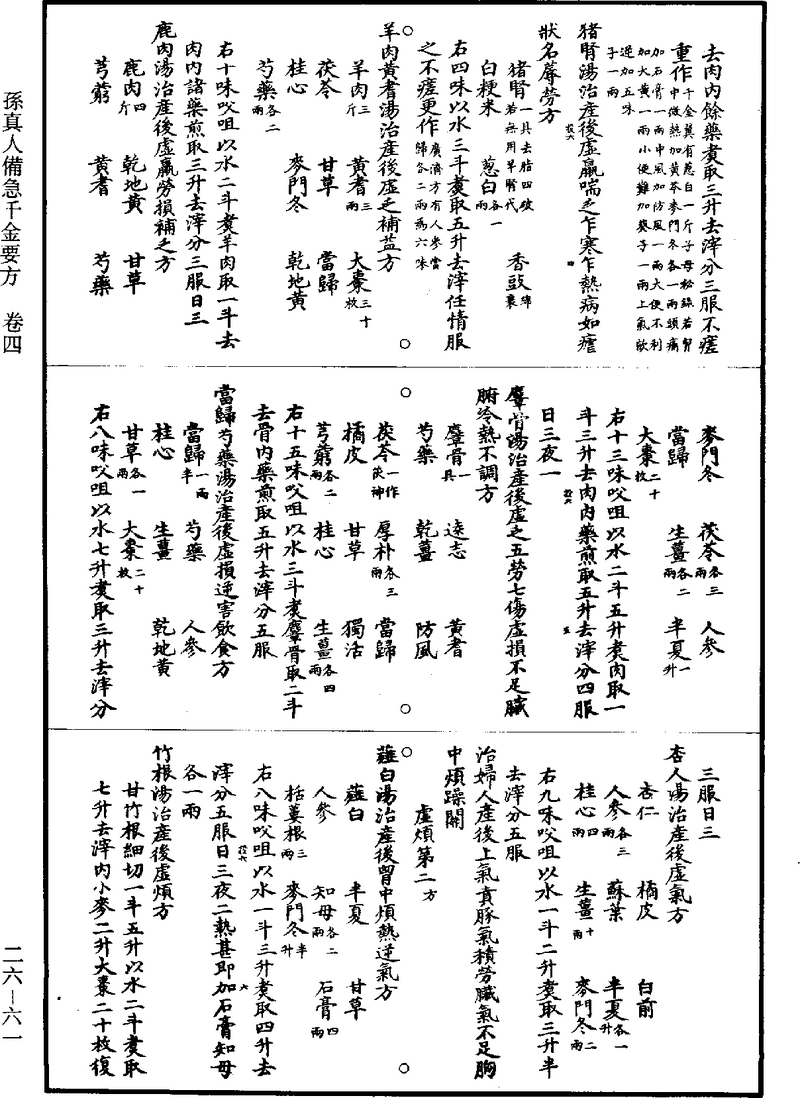 去肉內餘藥煑取三升去滓分三服不瘥
重作千金翼有葱白一斤子母秘錄若胷中微熱加黃芩麥門冬各一兩頭痛加石膏一兩中風加防風一兩大便不利加大黃一兩小便難加葵子一兩上氣欬逆加五味子一兩
猪腎湯治產後虛羸喘乏乍寒乍熱病如瘧
狀名蓐勞方
猪腎一具去脂四破若無用羊腎代 香豉綿裹
白粳米 葱白各一兩
右四味以水三斗煑取五升去滓任情服
之不瘥更作廣濟方有人參當歸各二兩爲六味
羊肉黃耆湯治產後虛乏補益方
羊肉三斤 黃耆三兩 大棗三十枚
茯苓 甘草 當歸
桂心 麥門冬 乾地黃
芍藥各二兩
右十味㕮咀以水二斗煑羊肉取一斗去
肉內諸藥煎取三升去滓分三服日三
鹿肉湯治產後虛羸勞損補乏方
鹿肉四斤 乾地黃 甘草
芎藭 黃耆 芍藥
麥門冬 茯苓各三兩 人參
當歸 生薑各二兩 半夏一升
大棗二十枚
右十三味㕮咀以水二斗五升煑肉取一
斗三升去肉內藥煎取五升去滓分四服
日三夜一
麞骨湯治產後虛乏五勞七傷虛損不足臟
腑冷熱不調方
麞骨一具 遠志 黃耆
芍藥 乾薑 防風
茯苓一作茯神 厚朴各三兩 當歸
橘皮 甘草 獨活
芎藭各二兩 桂心 生薑各四兩
右十五味㕮咀以水三斗煑麞骨取二斗
去骨內藥煎取五升去滓分五服
當歸芍藥湯治產後虛損逆害飲食方
當歸一兩半 芍藥 人參
桂心 生薑 乾地黃
甘草各一兩 大棗二十枚
右八味㕮咀以水七升煑取三升去滓分
三服日三
杏人湯治產後虛氣方
杏仁 橘皮 白前
人參各三兩 蘇葉 半夏各一升
桂心四兩 生薑十兩 麥門冬二兩
右九味㕮咀以水一斗二升煑取三升半
去滓分五服
治婦人產後上氣賁豚氣積勞臟氣不足胸
中煩躁關
虛煩第二方
薤白湯治產後胷中煩熱逆氣方
薤白 半夏 甘草
人參 知母各二兩 石膏四兩
栝蔞根三兩 麥門冬半升
右八味㕮咀以水一斗三升煑取四升去
滓分五服日三夜二熱甚即加石膏知母
各一兩
竹根湯治產後虛煩方
甘竹根細切一斗五升以水二斗煑取
七升去滓內小麥二升大棗二十枚復
孫真人備急千金要方 卷四
二六—六一